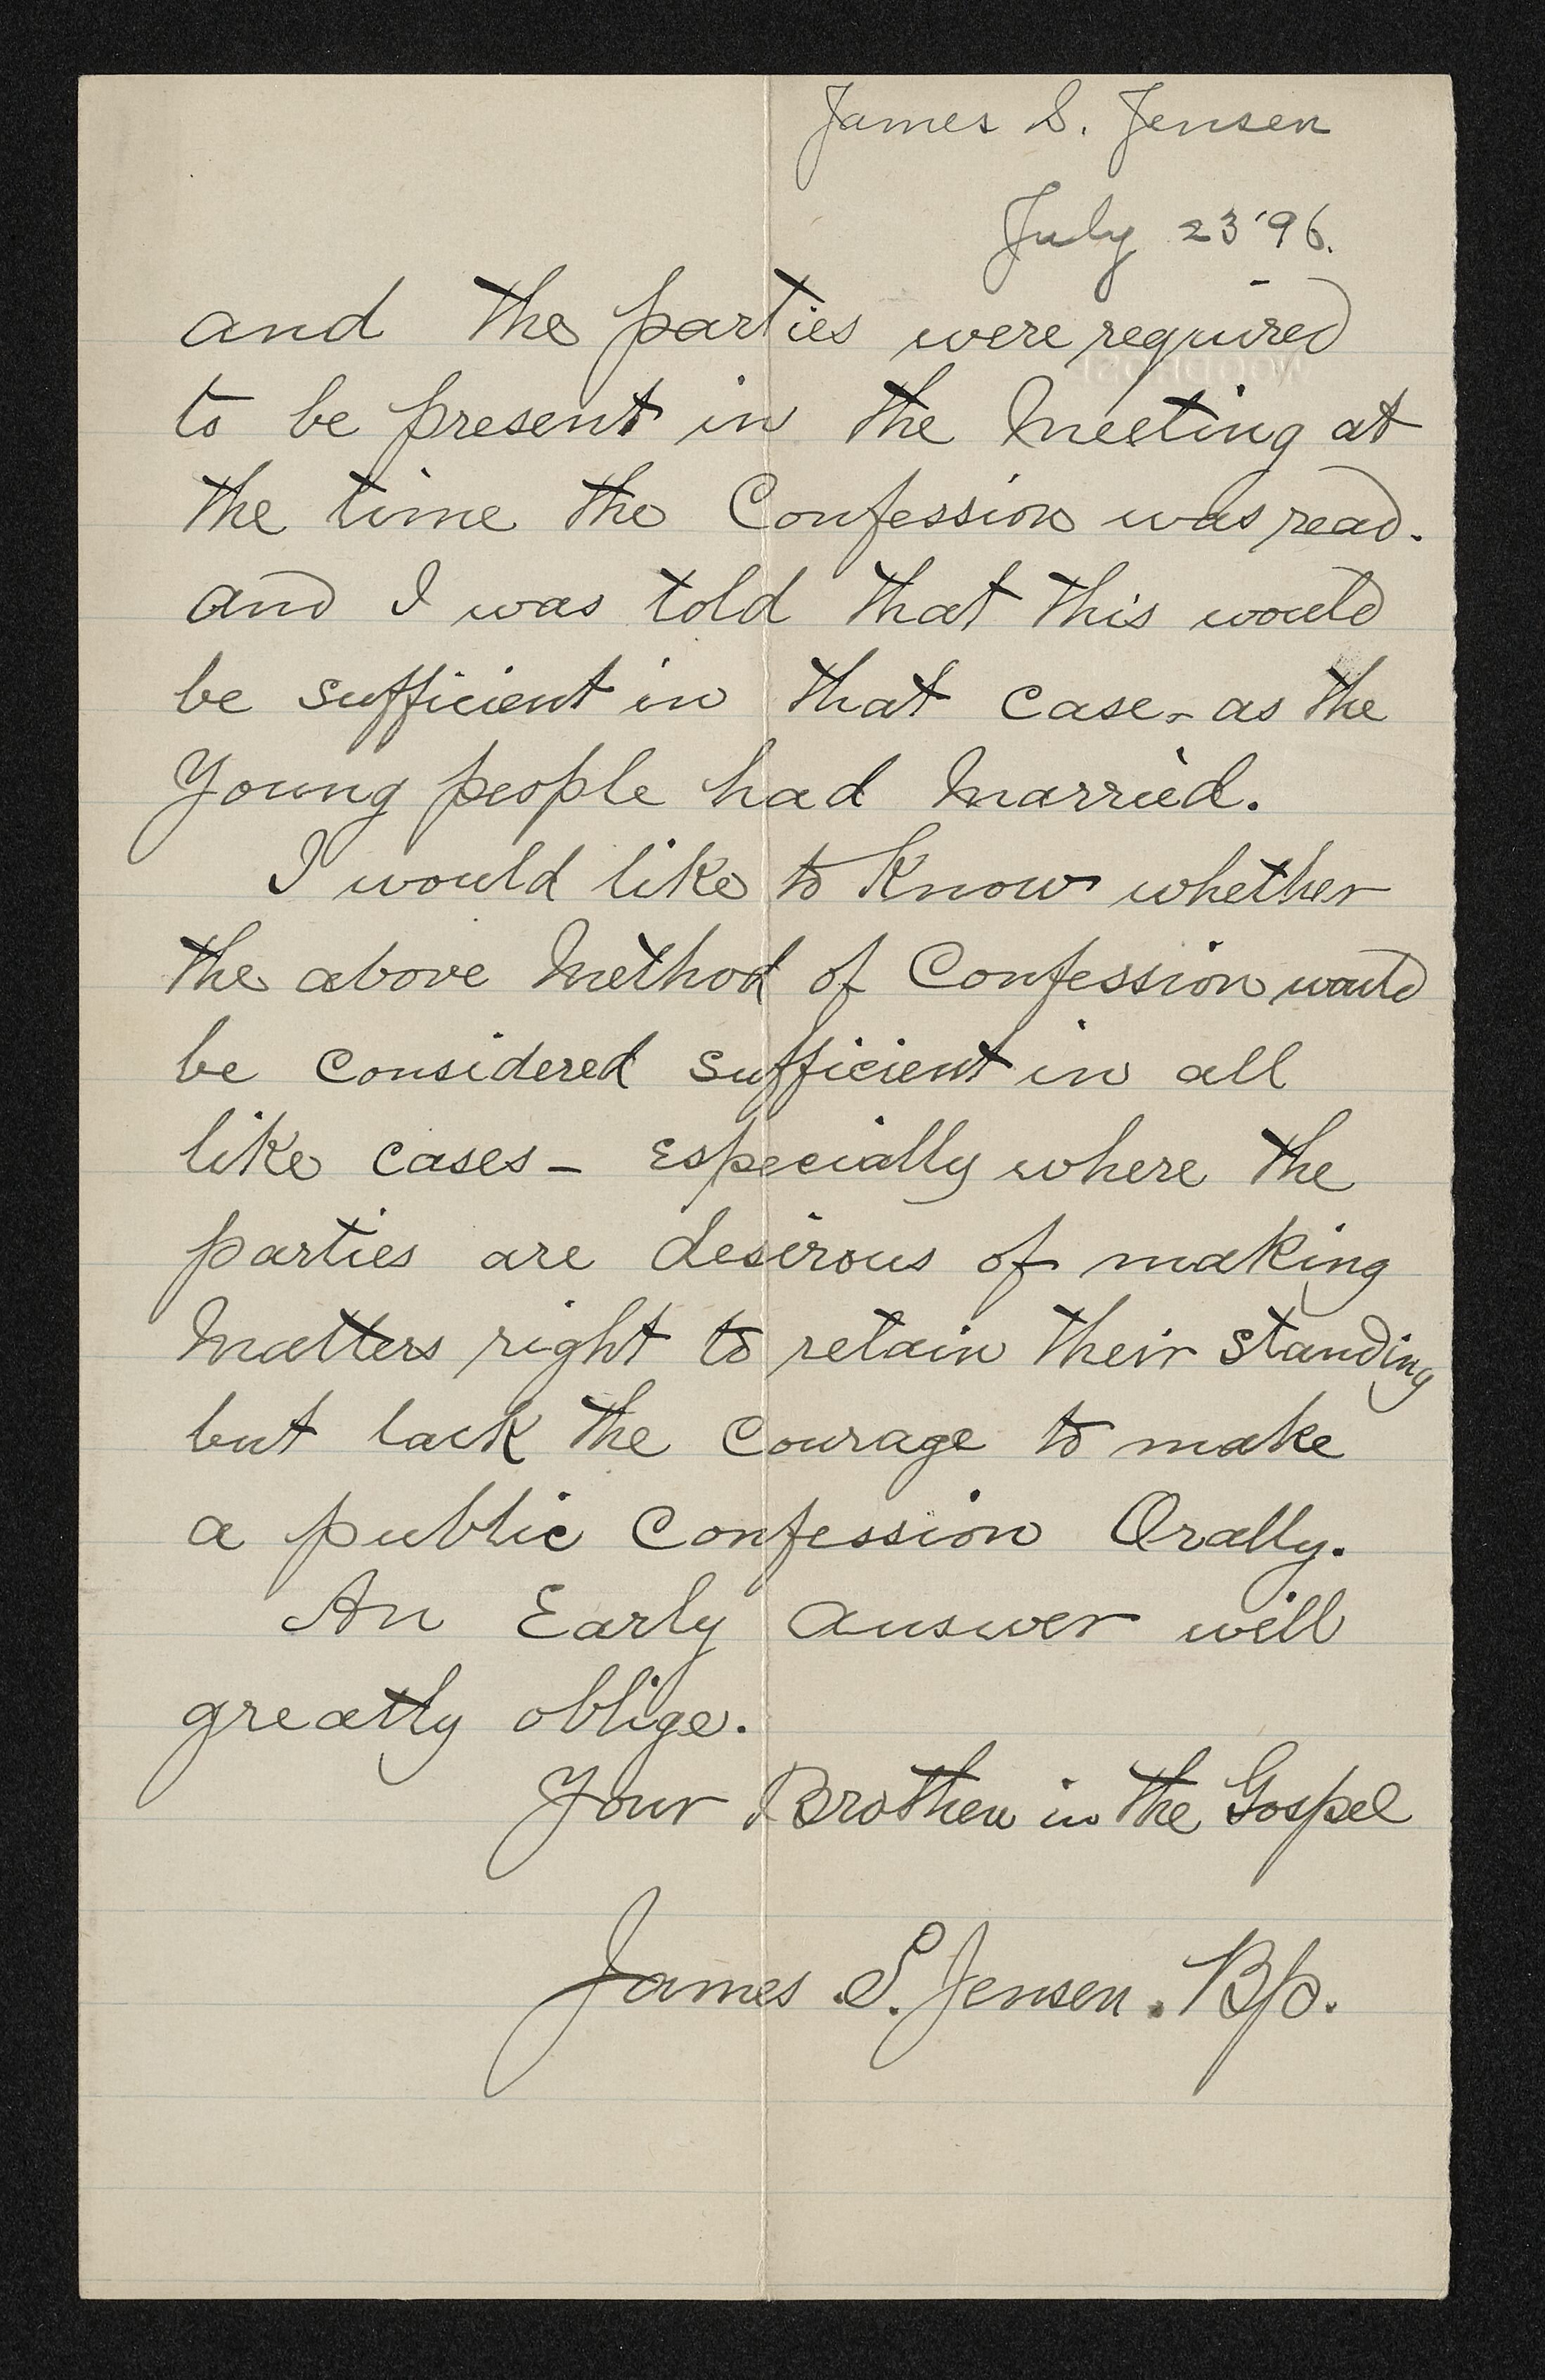 James S. Jensen
July 23 '96.
and the parties were required
to be present in the Meeting at
the time the Confession was read.
and I was told that this would
be sufficient in that case - as the
Young people had Married.
I would like to Know whether
the above Method of Confession would
be Considered sufficient in all
like cases - Especially where the
parties are desirous of making
Matters right to retain their standing
but lack the Courage to make
a public Confession Orally.
An Early answer will
greatly oblige.
Your Brother in the Gospel
James S. Jensen. Bp.